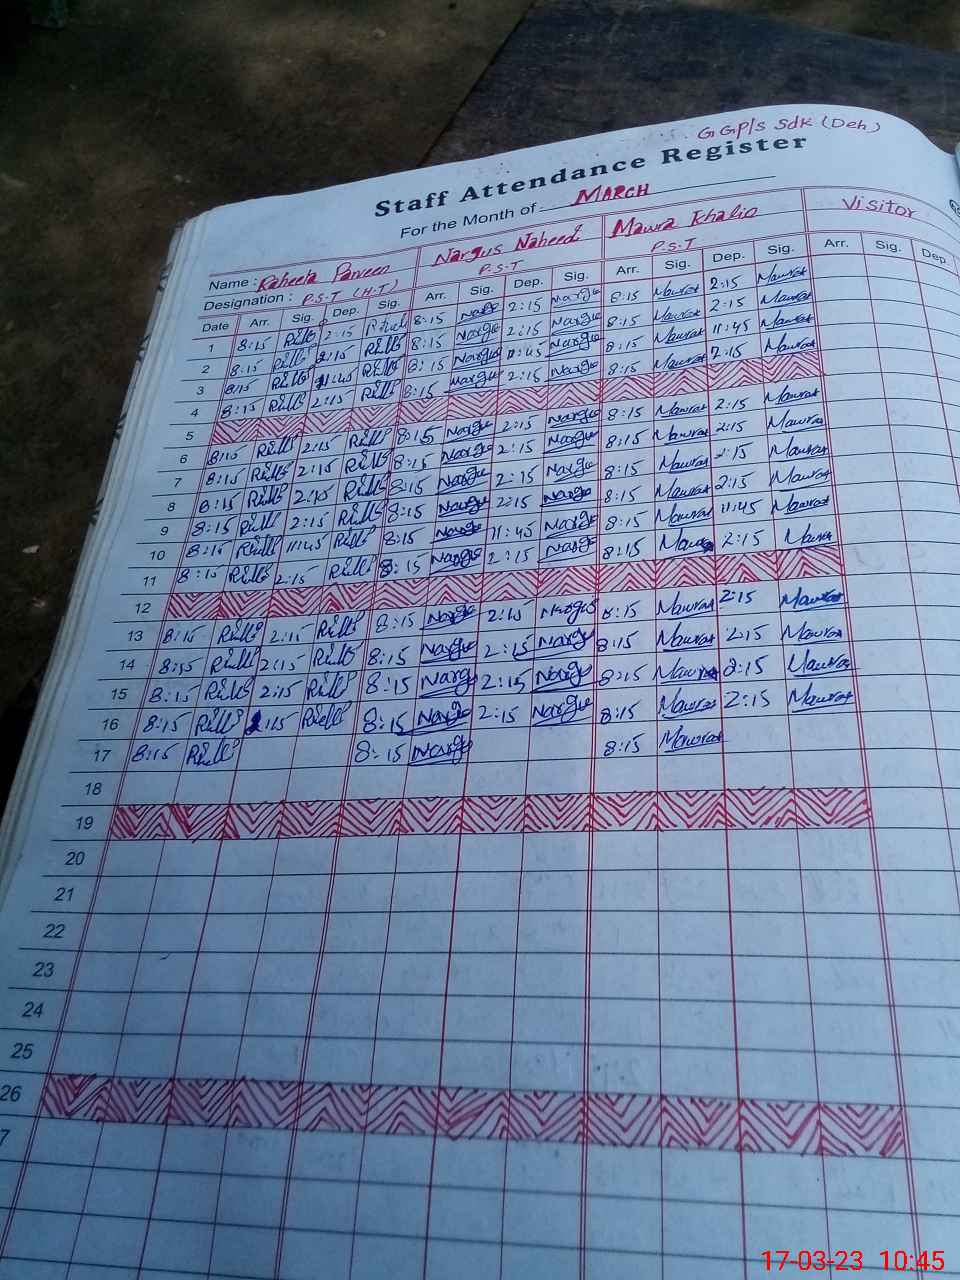 GGP/S Sdk (Deh)
Staff Attendance Register
For the Month of MARCH
Name: Raheela Parveen Nargus Naheed Mawra Khalid Visitor
Designation: P.S.T (H.T) P.S.T P.S.T
Date Arr. Sig. Dep. Sig. Arr. Sig. Dep. Sig. Arr. Sig. Dep. Sig. Arr. Sig. Dep.
1 8:15 2:15 8:15 Nargu 2:15 Nargu 8:15 Mawra 2:15 Mawra
2 8:15 2:15 8:15 Nargu 2:15 Nargu 8:15 Mawra 2:15 Mawra
3 8:15 11:45 8:15 Nargu 11:45 Nargu 8:15 Mawra 11:45 Mawra
4 8:15 2:15 8:15 Nargu 2:15 Nargu 8:15 Mawra 2:15 Mawra
5
6 8:15 2:15 8:15 Nargu 2:15 Nargu 8:15 Mawra 2:15 Mawra
7 8:15 2:15 8:15 Nargu 2:15 Nargu 8:15 Mawra 2:15 Mawra
8 8:15 2:15 8:15 Nargu 2:15 Nargu 8:15 Mawra 2:15 Mawra
9 8:15 2:15 8:15 Nargu 2:15 Nargu 8:15 Mawra 2:15 Mawra
10 8:15 11:45 8:15 Nargu 11:45 Nargu 8:15 Mawra 11:45 Mawra
11 8:15 2:15 8:15 Nargu 2:15 Nargu 8:15 Mawra 2:15 Mawra
12
13 8:15 2:15 8:15 Nargu 2:15 Nargu 8:15 Mawra 2:15 Mawra
14 8:15 2:15 8:15 Nargu 2:15 Nargu 8:15 Mawra 2:15 Mawra
15 8:15 2:15 8:15 Nargu 2:15 Nargu 8:15 Mawra 2:15 Mawra
16 8:15 2:15 8:15 Nargu 2:15 Nargu 8:15 Mawra 2:15 Mawra
17 8:15 8:15 Nargu 8:15 Mawra
18
19
20
21
22
23
24
25
26
7
17-03-23 10:45